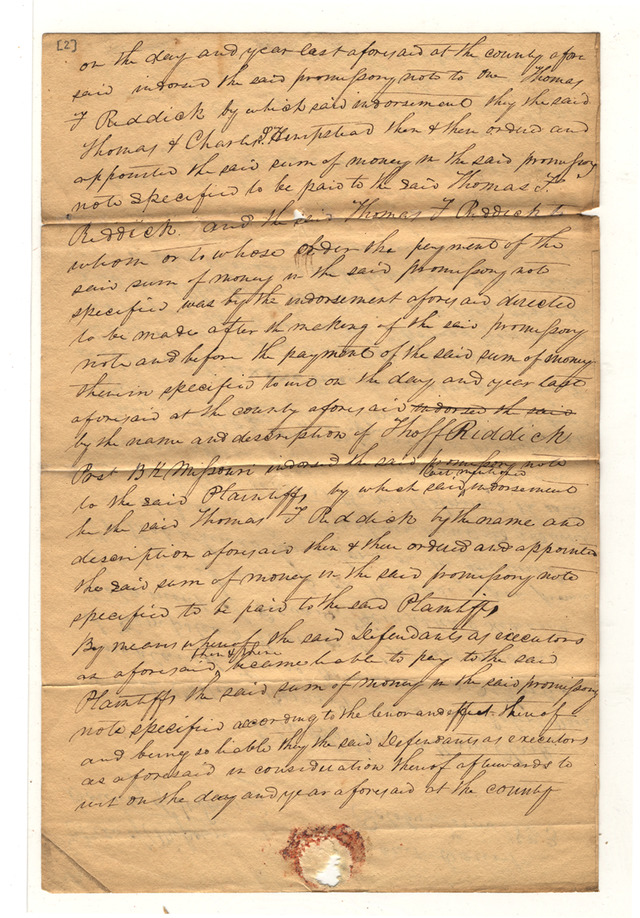 [2]
on the day and year last aforesaid at the county afore
said indorsed the said promissory note to one Thomas
F Riddick by which said indorsement they the said
Thomas & Charles S Hempstead then & there ordered and
appointed the said sum of money in the said promissory
note specified to be paid to the said Thomas F
Riddick. and the said Thomas F Riddick to
whom or to whose order the payment of the
said sum of money in the said promissory note
specified was by the indorsement aforesaid directed
to be made after the making of the said promissory
note and before the payment of the said sum of money
therein specified to wit on the day and year last
aforesaid at the county aforesaid indorsed the said
by the name and description of Tho F Riddick
Prest B K Missouri indorsed the said promissory note
to the said Plaintiffs by which said last mentioned indorsement
he the said Thomas F Riddick by the name and
description aforesaid then & there ordered and appointed
the said sum of money in the said promissory note
specified to be paid to the said Plaintiffs
By means whereof the said Defendants as executors
as aforesaid then & there became liable to pay to the said
Plaintiffs the said sum of money in the said promissory
note specified according to the tenor and effect thereof
and being so liable they the said Defendants as executors
as aforesaid in consideration thereof afterwards to
wit on the day and year aforesaid at the county